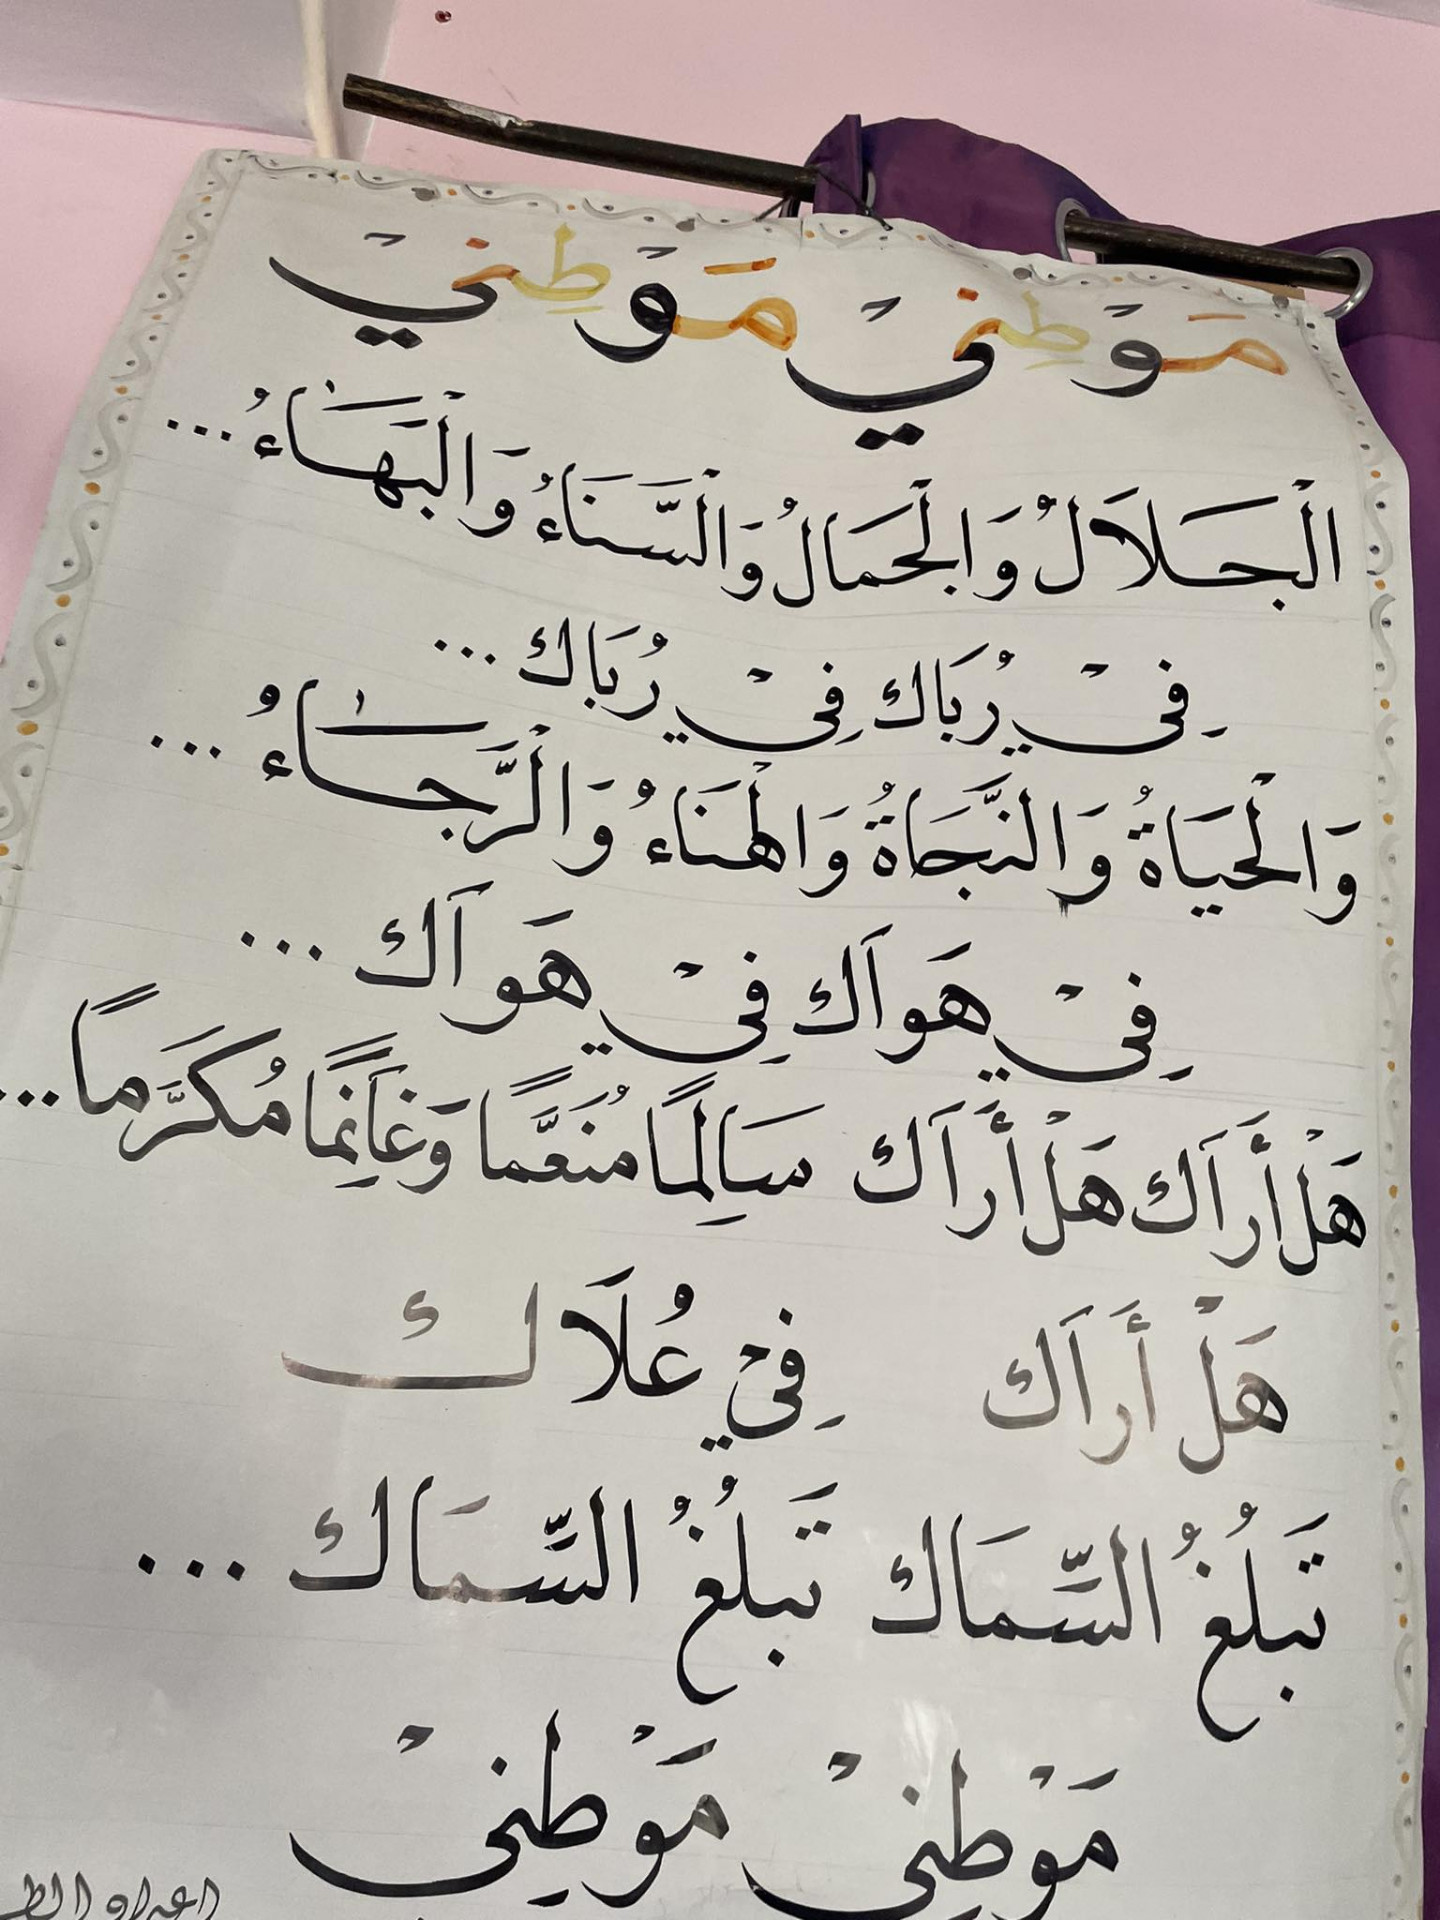 مَوْطِنيْ مَوْطِنيْ
الْجَلَالُ وَالْجَمَالُ وَالْسَّنَاءُ وَالْبَهَاءُ...
فِيْ رُبَاك فِيْ رُبَاك...
وَالْحَيَاةُ وَالنَّجَاةُ وَالْهَنَاءُ وَالْرَّجَاءُ...
فِيْ هَوَاك فِيْ هَوَاك...
هَلْ أَرَاك هَلْ أَرَاك سَالِمًا مُنَعَّمًا وَغَانِمًا مُكَرَّمًا...
هَلْ أَرَاك فِيْ عُلَاك
تَبلُغُ السِّمَاك تَبلُغُ السِّمَاك...
مَوْطِنيْ مَوْطِنيْ
اعداد